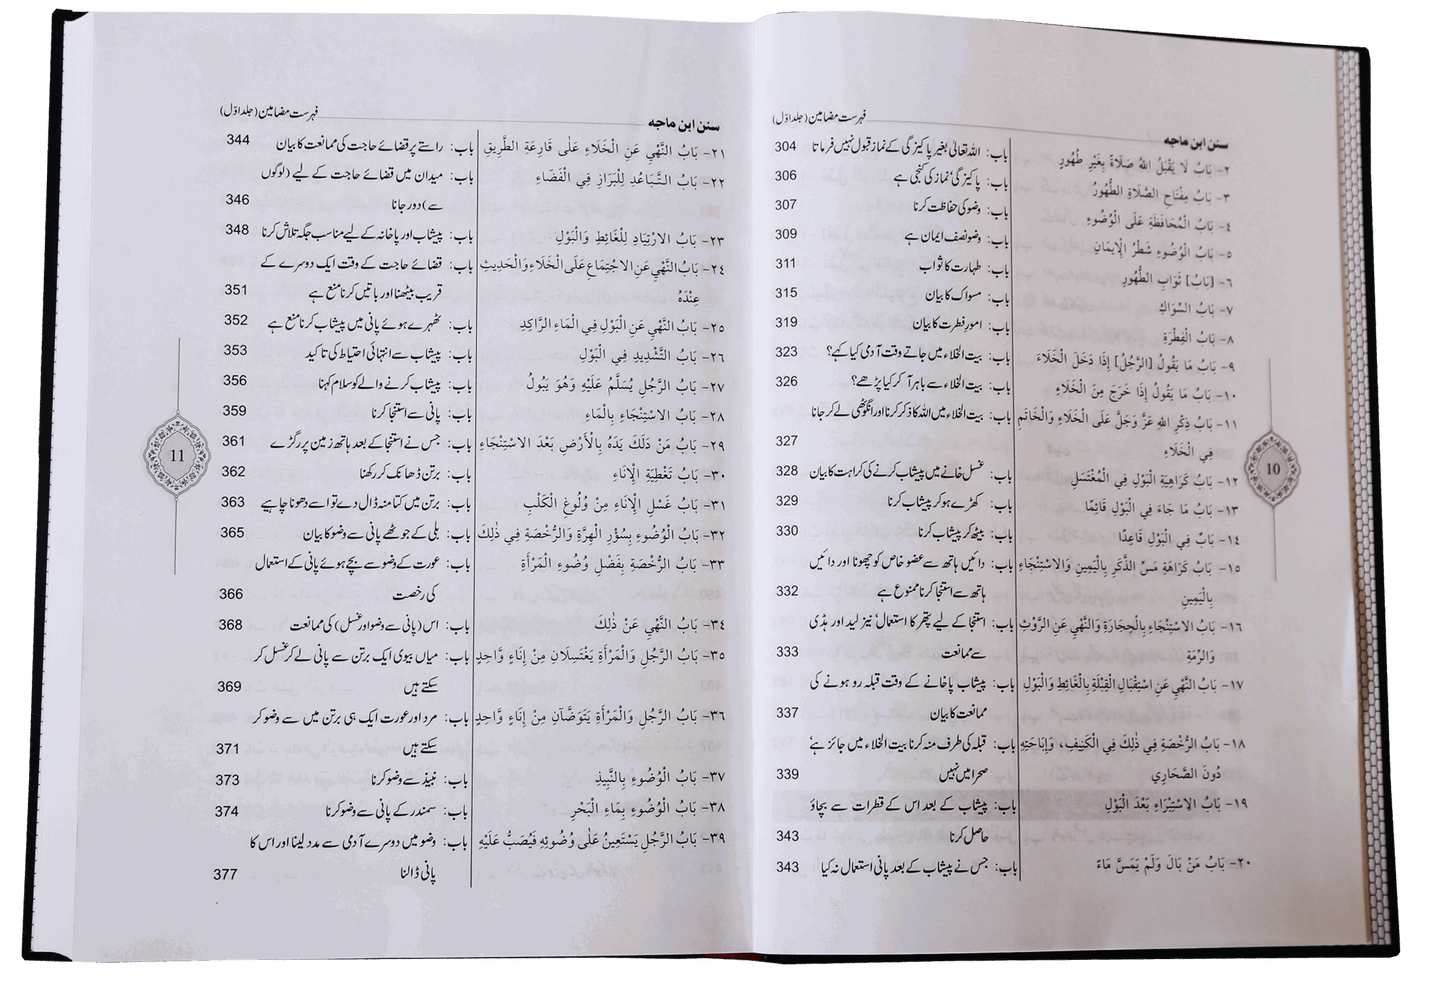 سنن ابن ماجه فہرست مضامین (جلد اوّل)
٢- بَابُ لَا يَقْبَلُ اللهُ صَلَاةً بِغَيْرِ طُهُورٍ باب: اللہ تعالیٰ بغیر پاکیزگی کے نماز قبول نہیں فرماتا 304
٣- بَابُ مِفْتَاحِ الصَّلَاةِ الطُّهُورُ باب: پاکیزگی نماز کی کنجی ہے 306
٤- بَابُ الْمُحَافَظَةِ عَلَى الْوُضُوءِ باب: وضو کی حفاظت کرنا 307
٥- بَابُ الْوُضُوءِ شَطْرُ الْإِيمَانِ باب: وضو نصف ایمان ہے 309
٦- [بَابُ] ثَوَابِ الطُّهُورِ باب: طہارت کا ثواب 311
٧- بَابُ السِّوَاكِ باب: مسواک کا بیان 315
٨- بَابُ الْفِطْرَةِ باب: امورِ فطرت کا بیان 319
٩- بَابُ مَا يَقُولُ [الرَّجُلُ] إِذَا دَخَلَ الْخَلَاءَ باب: بیت الخلاء میں جاتے وقت آدمی کیا کہے؟ 323
١٠- بَابُ مَا يَقُولُ إِذَا خَرَجَ مِنَ الْخَلَاءِ باب: بیت الخلاء سے باہر آ کر کیا پڑھے؟ 326
١١- بَابُ ذِكْرِ اللهِ عَزَّ وَجَلَّ عَلَى الْخَلَاءِ وَالْخَاتَمِ باب: بیت الخلاء میں اللہ کا ذکر کرنا اور انگوٹھی لے کر جانا
فِي الْخَلَاءِ 327
١٢- بَابُ كَرَاهِيَةِ الْبَوْلِ فِي الْمُغْتَسَلِ باب: غسل خانے میں پیشاب کرنے کی کراہت کا بیان 328
١٣- بَابُ مَا جَاءَ فِي الْبَوْلِ قَائِمًا باب: کھڑے ہو کر پیشاب کرنا 329
١٤- بَابٌ فِي الْبَوْلِ قَاعِدًا باب: بیٹھ کر پیشاب کرنا 330
١٥- بَابُ كَرَاهَةِ مَسِّ الذَّكَرِ بِالْيَمِينِ وَالِاسْتِنْجَاءِ باب: دائیں ہاتھ سے عضو خاص کو چھونا اور دائیں
بِالْيَمِينِ ہاتھ سے استنجا کرنا ممنوع ہے 332
١٦- بَابُ الِاسْتِنْجَاءِ بِالْحِجَارَةِ وَالنَّهْيِ عَنِ الرَّوْثِ باب: استنجا کے لیے پتھر کا استعمال نیز لید اور ہڈی
وَالرِّمَّةِ سے ممانعت 333
١٧- بَابُ النَّهْيِ عَنِ اسْتِقْبَالِ الْقِبْلَةِ بِالْغَائِطِ وَالْبَوْلِ باب: پیشاب پاخانے کے وقت قبلہ رو ہونے کی
ممانعت کا بیان 337
١٨- بَابُ الرُّخْصَةِ فِي ذٰلِكَ فِي الْكَنِيفِ، وَإِبَاحَتِهِ باب: قبلہ کی طرف منہ کرنا بیت الخلاء میں جائز ہے
دُونَ الصَّحَارِي صحرا میں نہیں 339
١٩- بَابُ الِاسْتِبْرَاءِ بَعْدَ الْبَوْلِ باب: پیشاب کے بعد اس کے قطرات سے بچاؤ
حاصل کرنا 343
٢٠- بَابُ مَنْ بَالَ وَلَمْ يَمَسَّ مَاءً باب: جس نے پیشاب کے بعد پانی استعمال نہ کیا 343
10
سنن ابن ماجه فہرست مضامین (جلد اوّل)
٢١- بَابُ النَّهْيِ عَنِ الْخَلَاءِ عَلَى قَارِعَةِ الطَّرِيقِ باب: راستے پر قضائے حاجت کی ممانعت کا بیان 344
٢٢- بَابُ التَّبَاعُدِ لِلْبَرَازِ فِي الْفَضَاءِ باب: میدان میں قضائے حاجت کے لیے (لوگوں
سے) دور جانا 346
٢٣- بَابُ الِارْتِيَادِ لِلْغَائِطِ وَالْبَوْلِ باب: پیشاب اور پاخانہ کے لیے مناسب جگہ تلاش کرنا 348
٢٤- بَابُ النَّهْيِ عَنِ الِاجْتِمَاعِ عَلَى الْخَلَاءِ وَالْحَدِيثِ باب: قضائے حاجت کے وقت ایک دوسرے کے
عِنْدَهُ قریب بیٹھنا اور باتیں کرنا منع ہے 351
٢٥- بَابُ النَّهْيِ عَنِ الْبَوْلِ فِي الْمَاءِ الرَّاكِدِ باب: ٹھہرے ہوئے پانی میں پیشاب کرنا منع ہے 352
٢٦- بَابُ التَّشْدِيدِ فِي الْبَوْلِ باب: پیشاب سے انتہائی احتیاط کی تاکید 353
٢٧- بَابُ الرَّجُلِ يُسَلَّمُ عَلَيْهِ وَهُوَ يَبُولُ باب: پیشاب کرنے والے کو سلام کہنا 356
٢٨- بَابُ الِاسْتِنْجَاءِ بِالْمَاءِ باب: پانی سے استنجا کرنا 359
٢٩- بَابُ مَنْ دَلَكَ يَدَهُ بِالْأَرْضِ بَعْدَ الِاسْتِنْجَاءِ باب: جس نے استنجا کے بعد ہاتھ زمین پر رگڑے 361
٣٠- بَابُ تَغْطِيَةِ الْإِنَاءِ باب: برتن ڈھانک کر رکھنا 362
٣١- بَابُ غَسْلِ الْإِنَاءِ مِنْ وُلُوغِ الْكَلْبِ باب: برتن میں کتا منہ ڈال دے تو اسے دھونا چاہیے 363
٣٢- بَابُ الْوُضُوءِ بِسُؤْرِ الْهِرَّةِ وَالرُّخْصَةِ فِي ذٰلِكَ باب: بلی کے جوٹھے پانی سے وضو کا بیان 365
٣٣- بَابُ الرُّخْصَةِ بِفَضْلِ وُضُوءِ الْمَرْأَةِ باب: عورت کے وضو سے بچے ہوئے پانی کے استعمال
کی رخصت 366
٣٤- بَابُ النَّهْيِ عَنْ ذٰلِكَ باب: اس (پانی سے وضو اور غسل) کی ممانعت 368
٣٥- بَابُ الرَّجُلِ وَالْمَرْأَةِ يَغْتَسِلَانِ مِنْ إِنَاءٍ وَّاحِدٍ باب: میاں بیوی ایک برتن سے پانی لے کر غسل کر
سکتے ہیں 369
٣٦- بَابُ الرَّجُلِ وَالْمَرْأَةِ يَتَوَضَّآنِ مِنْ إِنَاءٍ وَّاحِدٍ باب: مرد اور عورت ایک ہی برتن میں سے وضو کر
سکتے ہیں 371
٣٧- بَابُ الْوُضُوءِ بِالنَّبِيذِ باب: نبیذ سے وضو کرنا 373
٣٨- بَابُ الْوُضُوءِ بِمَاءِ الْبَحْرِ باب: سمندر کے پانی سے وضو کرنا 374
٣٩- بَابُ الرَّجُلِ يَسْتَعِينُ عَلَى وُضُوئِهِ فَيُصَبُّ عَلَيْهِ باب: وضو میں دوسرے آدمی سے مدد لینا اور اس کا
پانی ڈالنا 377
11